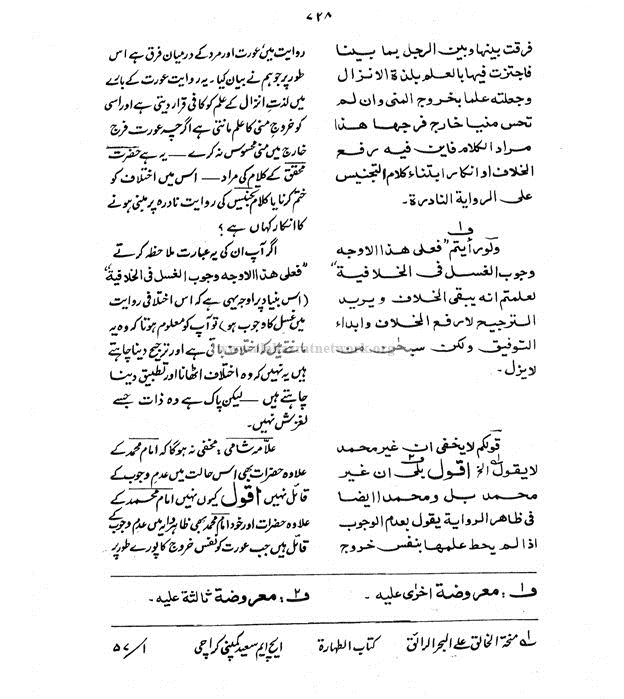 ۷۲۸
فرقت بینھا وبین الرجل بما بینا
فاجتزت فیھا بالعلم بلذۃ الانزال
وجعلتہ علما بخروج المنی وان لم
تحس منیا خارج فرجھا ھذا
مراد الکلام فاین فیہ رفع
الخلاف او انکار ابتناء کلام التجنیس
علی الروایۃ النادرۃ۔
ف۱
ولو رأیتم "فعلی ھذا الاوجہ
وجوب الغسل فی الخلافیۃ"
لعلمتم انہ یبقی الخلاف ویرید
الترجیح لا رفع الخلاف وابداء
التوفیق ولکن سبحٰن من
لا یزل۔
قولکم لا یخفی ان غیر محمد
لا یقول الخ اقول بلی ان غیر
محمد بل ومحمدا ایضا
فی ظاھر الروایۃ یقول بعدم الوجوب
اذا لم یحط علمھا بنفس خروج
روایت میں عورت اور مرد کے درمیان فرق ہے اس
طور پر جو ہم نے بیان کیا۔ یہ روایت عورت کے بارے
میں لذتِ انزال کے علم کو کافی قرار دیتی ہے اور اسی
کو خروجِ منی کا علم مانتی ہے اگرچہ عورت فرج
خارج میں منی محسوس نہ کرے — یہ ہے حضرت
محقق کے کلام کی مراد — اس میں اختلاف کو
ختم کرنا یا کلام تجنیس کی روایت نادرہ پر مبنی ہونے
کا انکار کہاں ہے ؟
اگر آپ ان کی یہ عبارت ملاحظہ کرتے
"فعلی ھذا الاوجہ وجوب الغسل فی الخلافیۃ"
(اس بنیاد پر اوجہ یہی ہے کہ اس اختلافی روایت
میں غسل کا وجوب ہو) تو آپ کو معلوم ہوتا کہ وہ یہ
مانتے ہیں اختلاف باقی ہے اور ترجیح دینا چاہتے
ہیں یہ نہیں کہ وہ اختلاف اٹھانا اور تطبیق دینا
چاہتے ہیں — لیکن پاک ہے وہ ذات جسے
لغزش نہیں۔
علامہ شامی : مخفی نہ ہوگا کہ امام محمد کے
علاوہ حضرات بھی اس حالت میں عدمِ وجوب کے
قائل نہیں اقول کیوں نہیں امام محمد کے
علاوہ حضرات اور خود امام محمد بھی ظاہر الروایہ میں عدم وجوب کے
قائل ہیں جب عورت کو نفس خروج کا پورے طور پر
ف۱ : معروضۃ اخرٰی علیہ ۔
ف۲ : معروضۃ ثالثۃ علیہ ۔
۱؎ منحۃ الخالق علی البحر الرائق کتاب الطہارۃ ایچ ایم سعید کمپنی کراچی ۱/ ۵۷